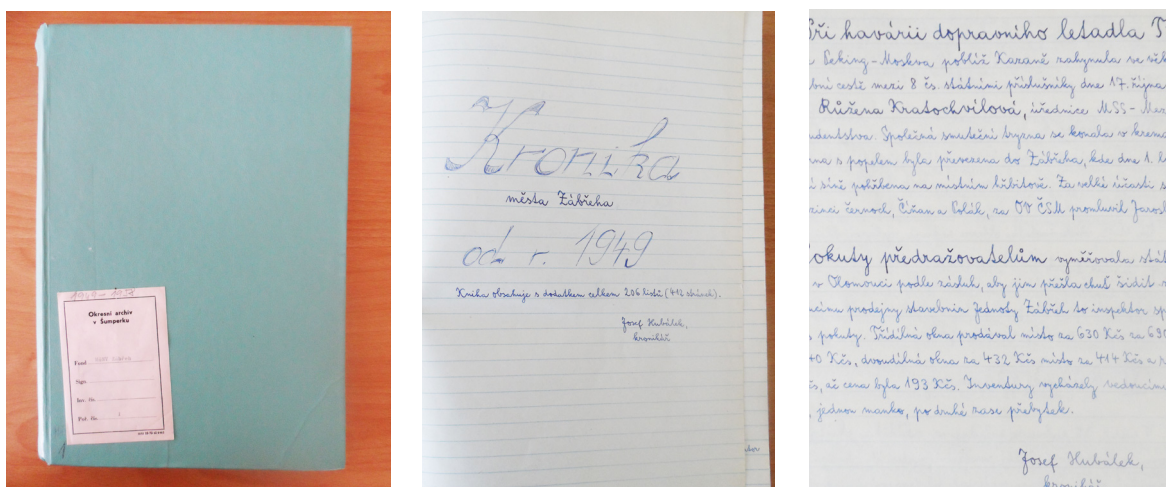 1949-1958
Okresní archiv
v Šumperku
Fond
Sign.
Inv. čís.
Poř. čís. 1
1
Kronika
města Zábřeha
od r. 1949
Kniha obsahuje s dodatkem celkem 206 listů (412 stránek).
Josef Hubálek,
kronikář
Při havárii dopravního letadla T
Peking-Moskva poblíž Kazaně zahynula se
bní cestě mezi 8 čs. státními příslušníky dne 17. října
Růžena Kratochvílová, úřednice MSS - Mez
udentstva. Společná smuteční tryzna se konala v krema
na s popelem byla převezena do Zábřeha, kde dne 1. li
síně pohřbena na místním hřbitově. Za velké účasti s
zinci černoch, Číňan a Polák, za OV ČSM promluvil Jarosl
okuty předražovatelům vyměřovala stát
v Olomouci podle zásluh, aby jim přešla chuť šidit
címu prodejny stavebnin Jednoty Zábřeh to inspektor sp
pokuty. Třídílná okna prodával místo za 630 Kčs za 690
40 Kčs, dvoudílná okna za 432 Kčs místo za 414 Kčs a
s, ač cena byla 193 Kčs. Inventury vycházely vedoucímu
, jednou manko, po druhé zase přebytek.
Josef Hubálek,
kronikář